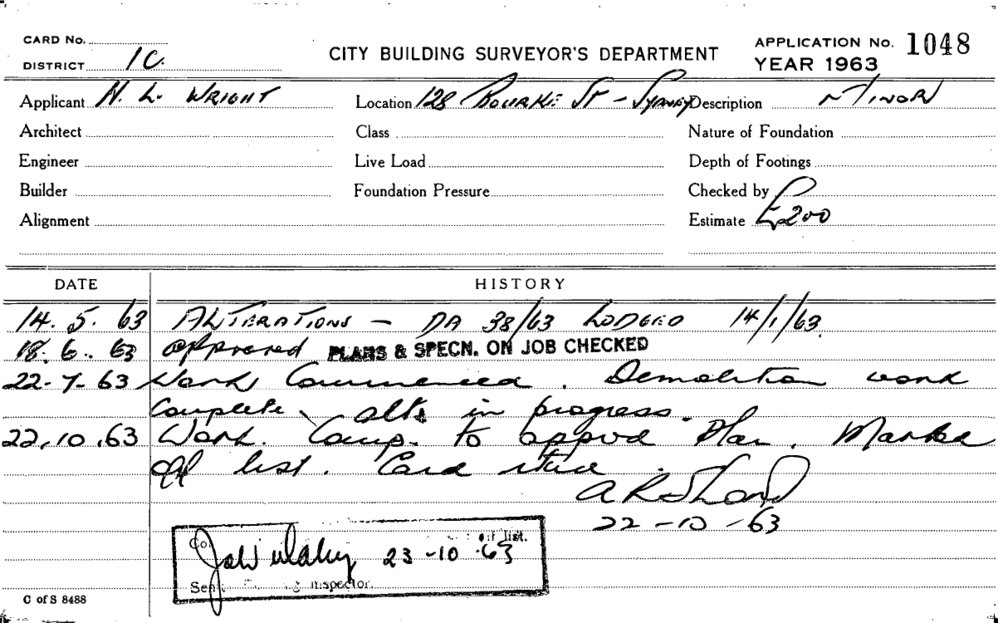 CARD No.
DISTRICT 1C.
CITY BUILDING SURVEYOR'S DEPARTMENT
APPLICATION No. 1048
YEAR 1963
Applicant N. L. WRIGHT Location 128 BOURKE ST - SYDNEY Description MINOR
Architect Class Nature of Foundation
Engineer Live Load Depth of Footings
Builder Foundation Pressure Checked by
Alignment Estimate £200
DATE HISTORY
14. 5. 63 ALTERATIONS - DA 38/63 LODGED 14/1/63
18. 6. 63 approved PLANS & SPECN. ON JOB CHECKED
22-7-63 Work Commenced. Demolition work
Complete, alts in progress.
22.10.63 Work. Comp. to approd Plan. Marked
off list. Card
22-10-63
Co list.
23-10-63
Sen inspector.
C of S 8488